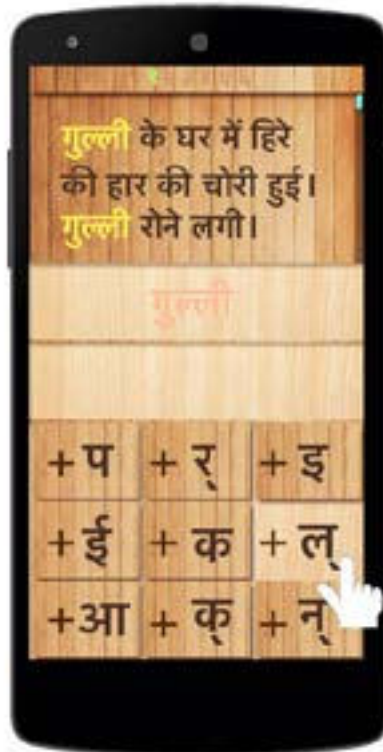 गुल्ली के घर में हिरे
की हार की चोरी हुई।
गुल्ली रोने लगी।
गुल्ली
+ प + र् + इ
+ ई + क + ल्
+आ + क् + न्